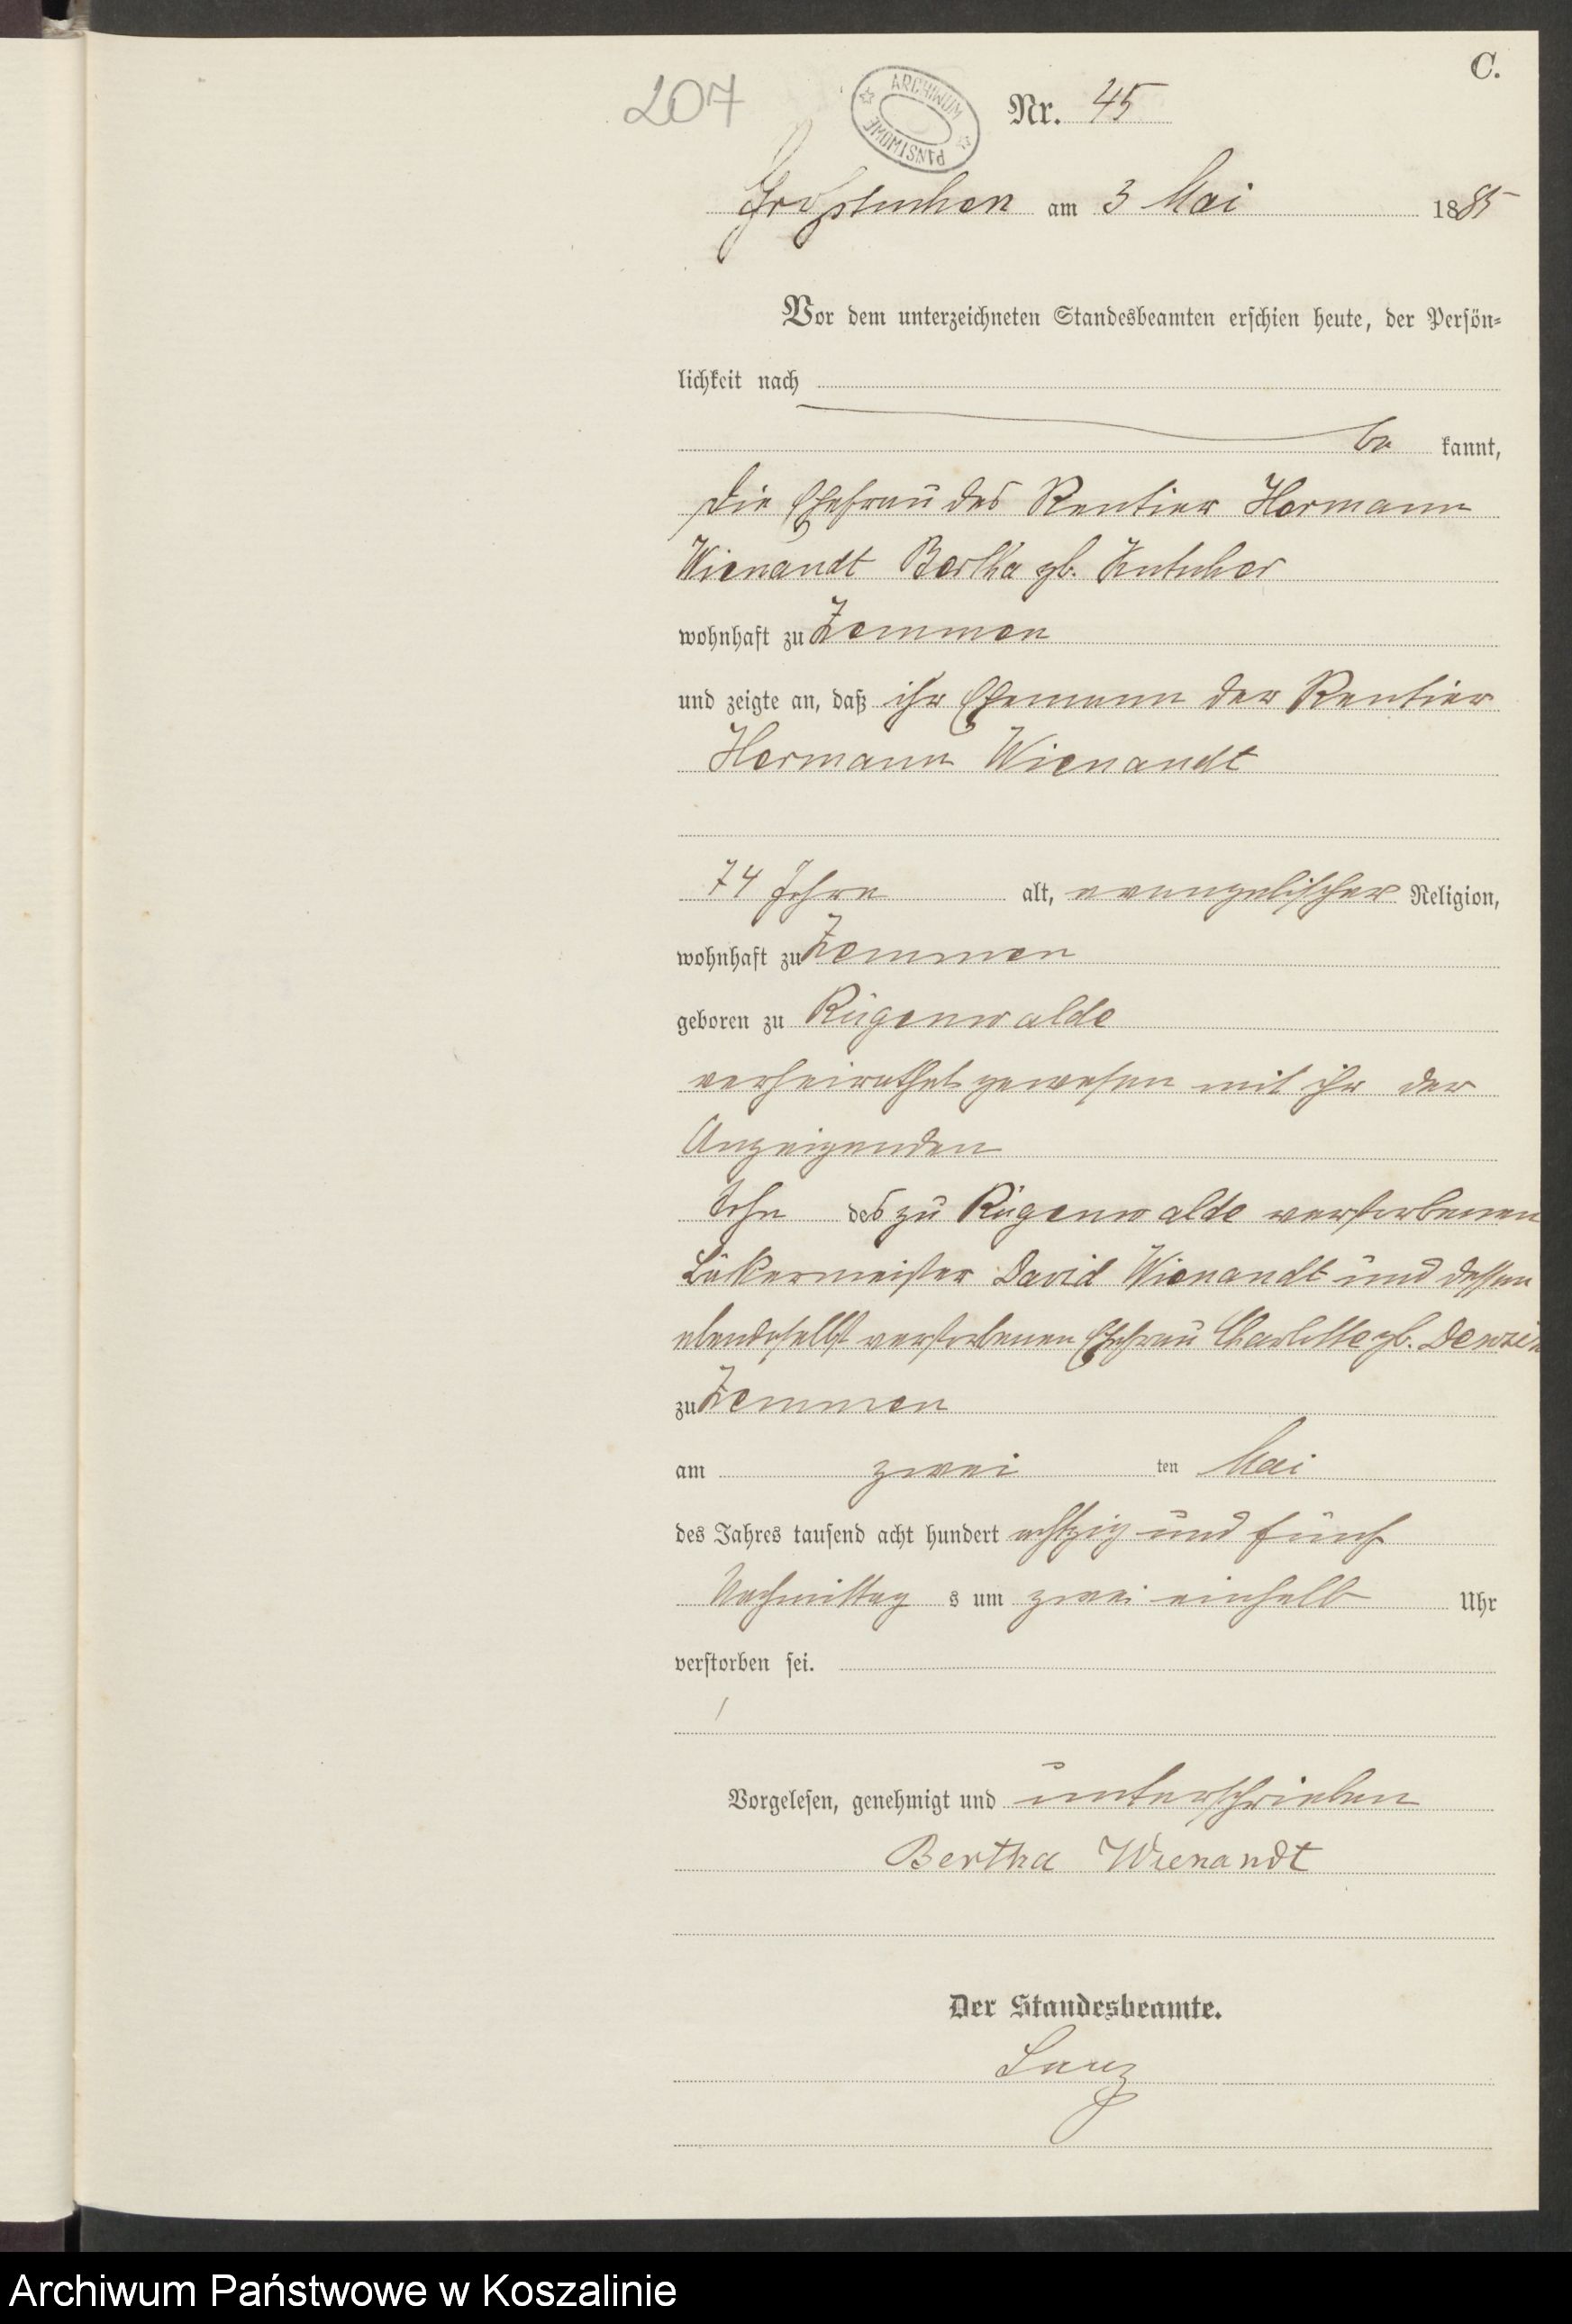 C.
207
ARCHIWUM PAŃSTWOWE
Nr. 45
Großtuchen am 3 Mai 1885
Vor dem unterzeichneten Standesbeamten erschien heute, der Persön-
lichkeit nach
be kannt,
die Ehefrau des Rentier Hermann
Wienandt Bertha gb.
wohnhaft zu Zemmen
und zeigte an, daß ihr Ehemann der Rentier
Hermann Wienandt
74 Jahre alt, evangelischer Religion,
wohnhaft zu Zemmen
geboren zu Rügenwalde
verheirathet gewesen mit ihr der
Anzeigenden
Sohn des zu Rügenwalde verstorbenen
David Wienandt und dessen
ebendaselbst verstorbenen Ehefrau Charlotte gb.
zu Zemmen
am zwei ten Mai
des Jahres tausend acht hundert achtzig und fünf
Nachmittag s um zwei einhalb Uhr
verstorben sei.
Vorgelesen, genehmigt und unterschrieben
Bertha Wienandt
Der Standesbeamte.
Archiwum Państwowe w Koszalinie